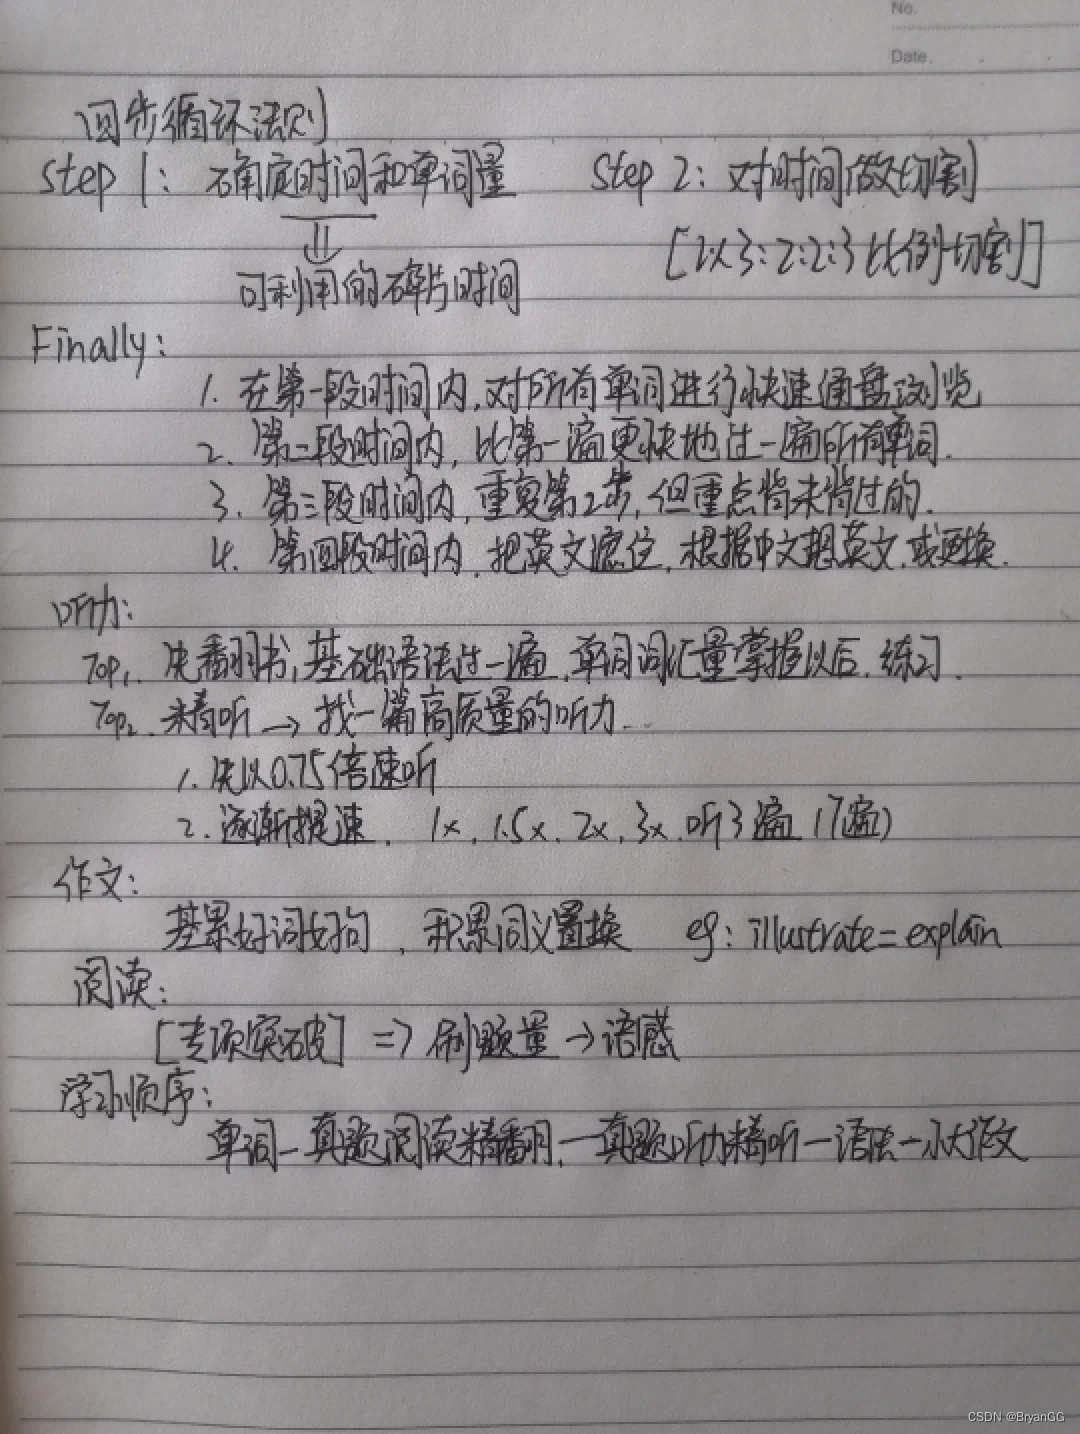 No.
Date.
四步循环法则
Step 1: 确定时间和单词量 Step 2: 对时间做切割
[以3:2:2:3比例切割]
可利用的碎片时间
Finally:
1. 在第一段时间内,对所有单词进行快速通盘浏览
2. 第二段时间内,比第一遍更快地过一遍所有单词.
3. 第三段时间内,重复第2步,但重点背未背过的.
4. 第四段时间内,把英文遮住,根据中文想英文,或更换.
听力:
Top1. 先翻书,基础语法过一遍,单词词汇量掌握以后,练习.
Top2. 精听→找一篇高质量的听力.
1. 先以0.75倍速听
2. 逐渐提速, 1x, 1.5x, 2x, 3x 听3遍 (7遍)
作文:
基累好词好句, 积累词义置换 eg: illustrate=explain
阅读:
[专项突破] => 刷题量→语感
学习顺序:
单词—真题阅读精翻—真题听力精听—语法—小大作文
CSDN @BryanGG